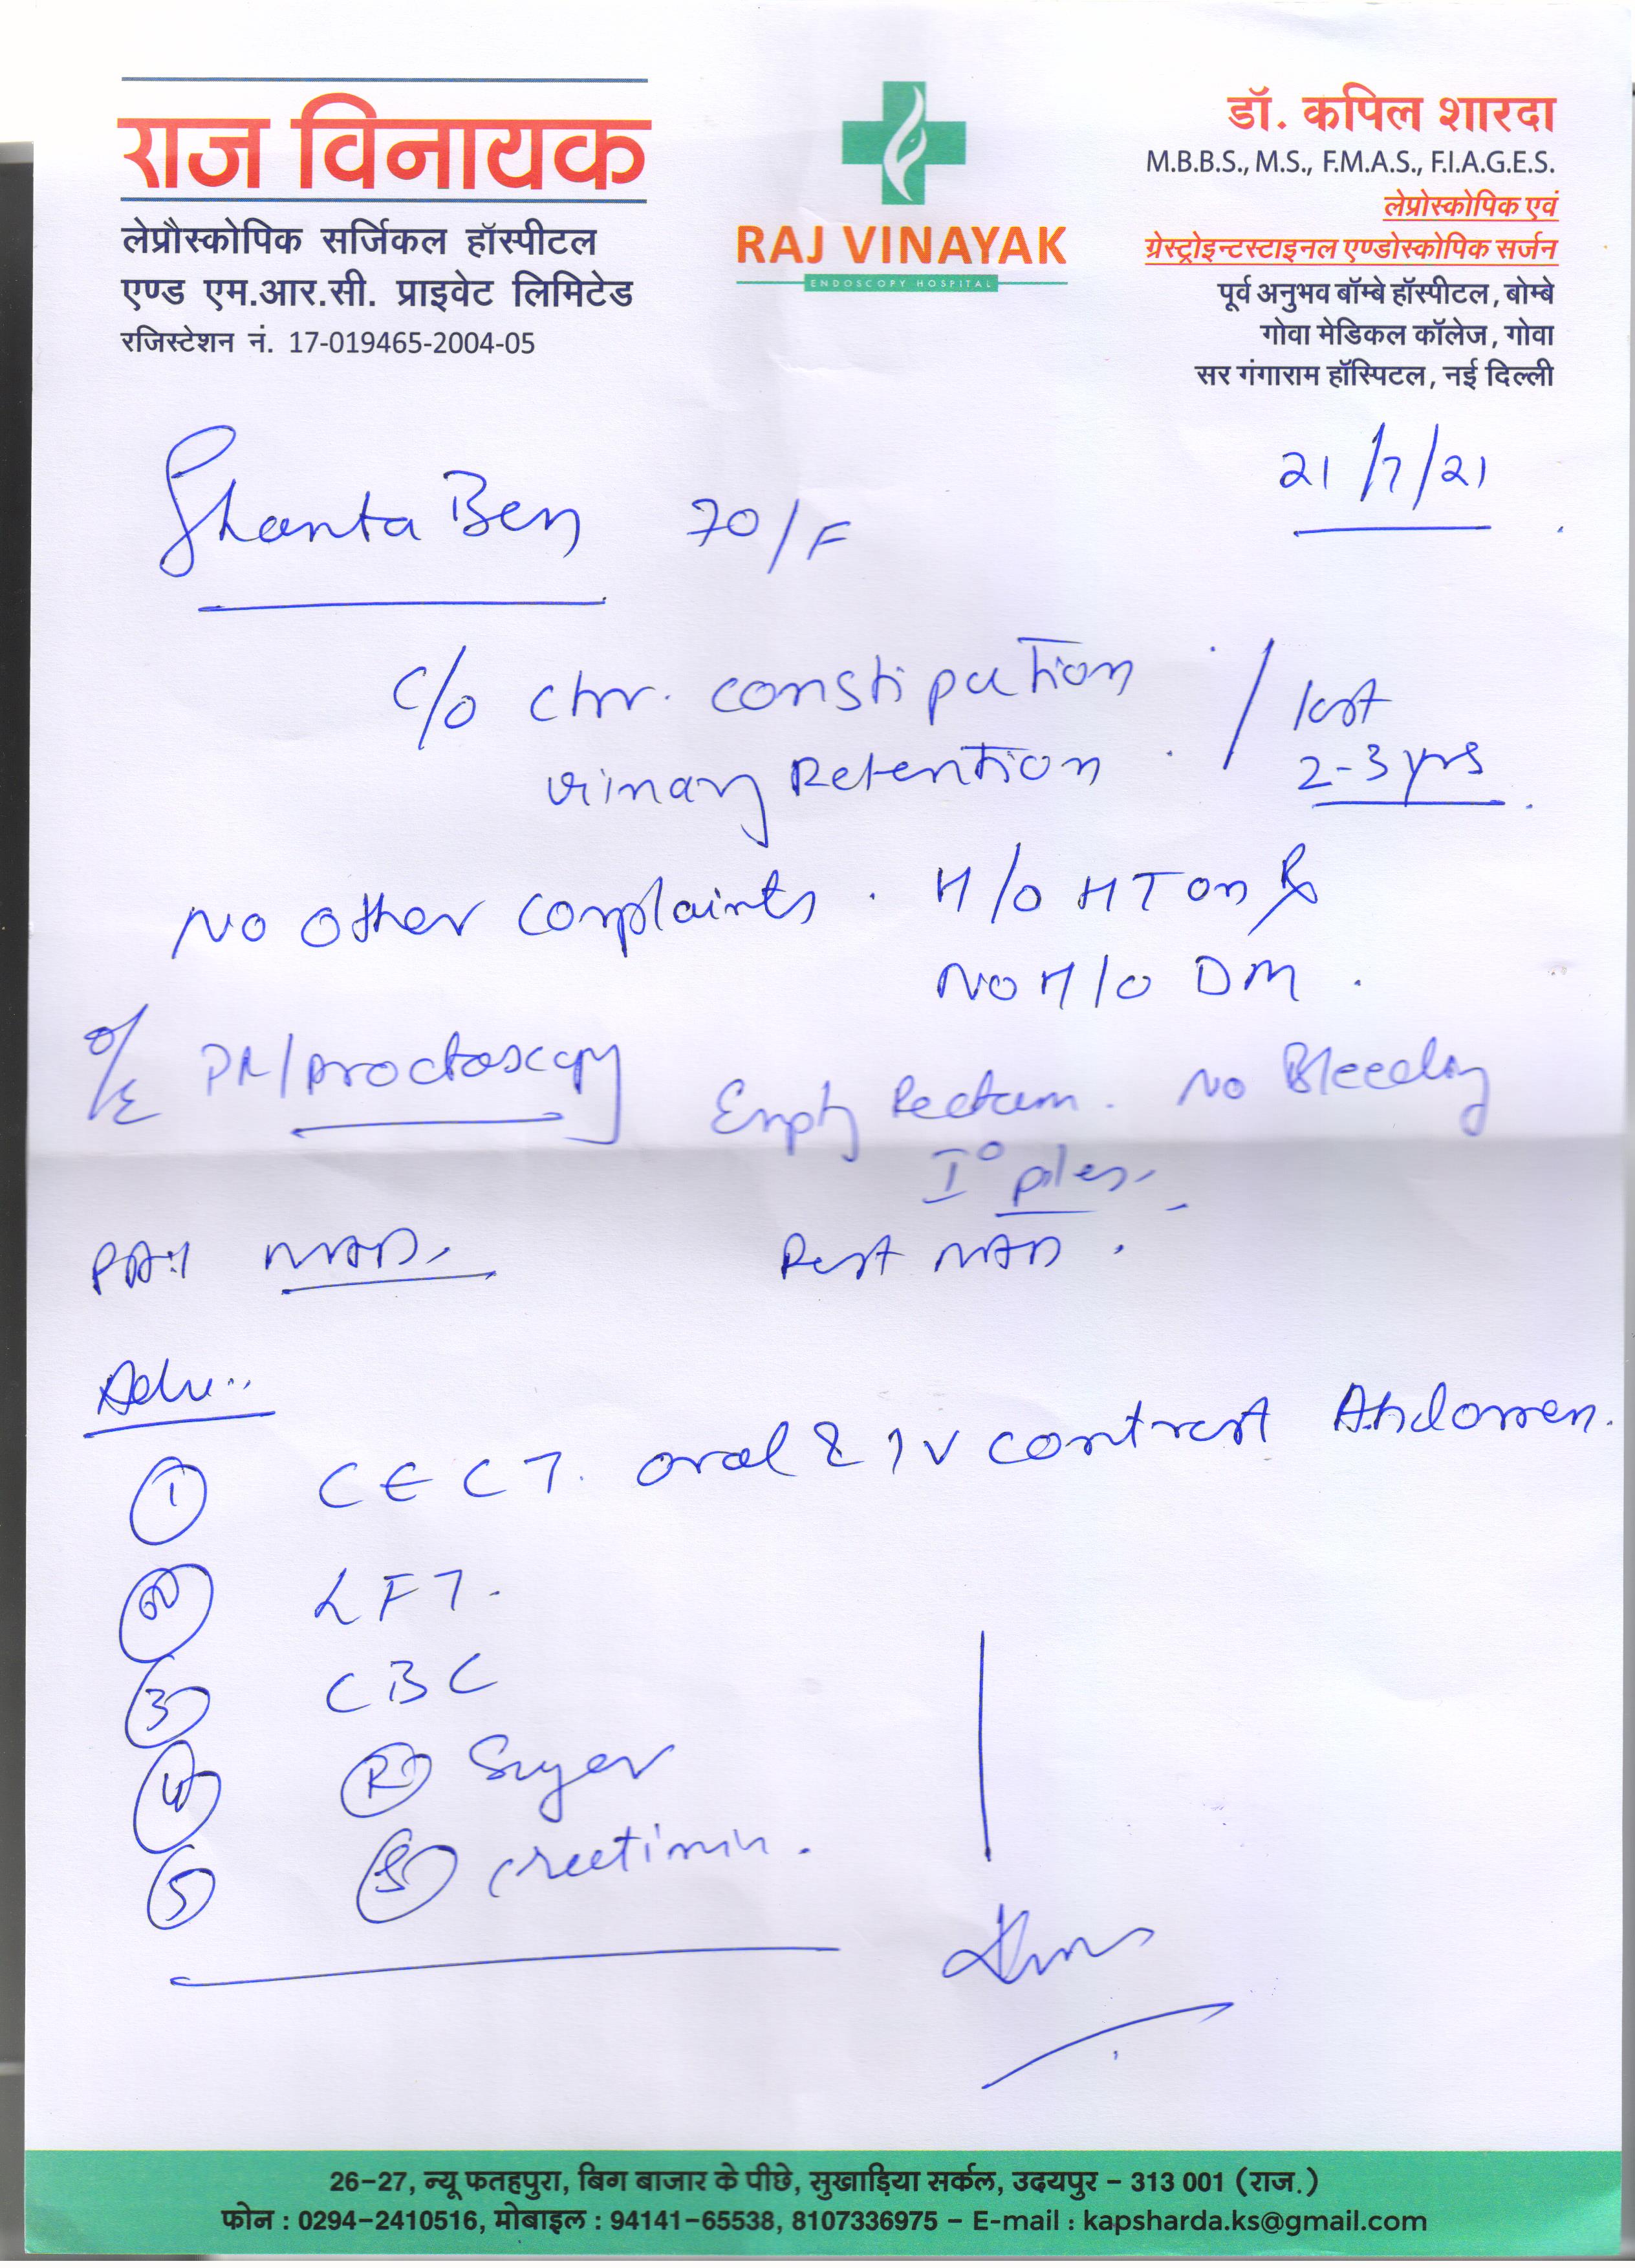 राज विनायक
लेप्रौस्कोपिक सर्जिकल हॉस्पीटल
एण्ड एम.आर.सी. प्राइवेट लिमिटेड
रजिस्टेशन नं. 17-019465-2004-05
RAJ VINAYAK
ENDOSCOPY HOSPITAL
डॉ. कपिल शारदा
M.B.B.S., M.S., F.M.A.S., F.I.A.G.E.S.
लेप्रोस्कोपिक एवं
ग्रेस्ट्रोइन्टस्टाइनल एण्डोस्कोपिक सर्जन
पूर्व अनुभव बॉम्बे हॉस्पीटल, बोम्बे
गोवा मेडिकल कॉलेज, गोवा
सर गंगाराम हॉस्पिटल, नई दिल्ली
21/7/21
Shanta Ben 70/F
C/o chr. constipation / last
urinary Retention . 2-3 yrs
No other complaints . H/o HT on Rx
No H/o DM .
O/E PR/proctoscopy Empty Rectum . No Bleeding
I° piles
P/A: NAD. Rest NAD .
Adv:
① CECT. oral & IV contrast Abdomen.
② LFT.
③ CBC
④ Ⓡ Sugar
⑤ Ⓢ creetinin .
26-27, न्यू फतहपुरा, बिग बाजार के पीछे, सुखाड़िया सर्कल, उदयपुर - 313 001 (राज.)
फोन : 0294-2410516, मोबाइल : 94141-65538, 8107336975 - E-mail : kapsharda.ks@gmail.com